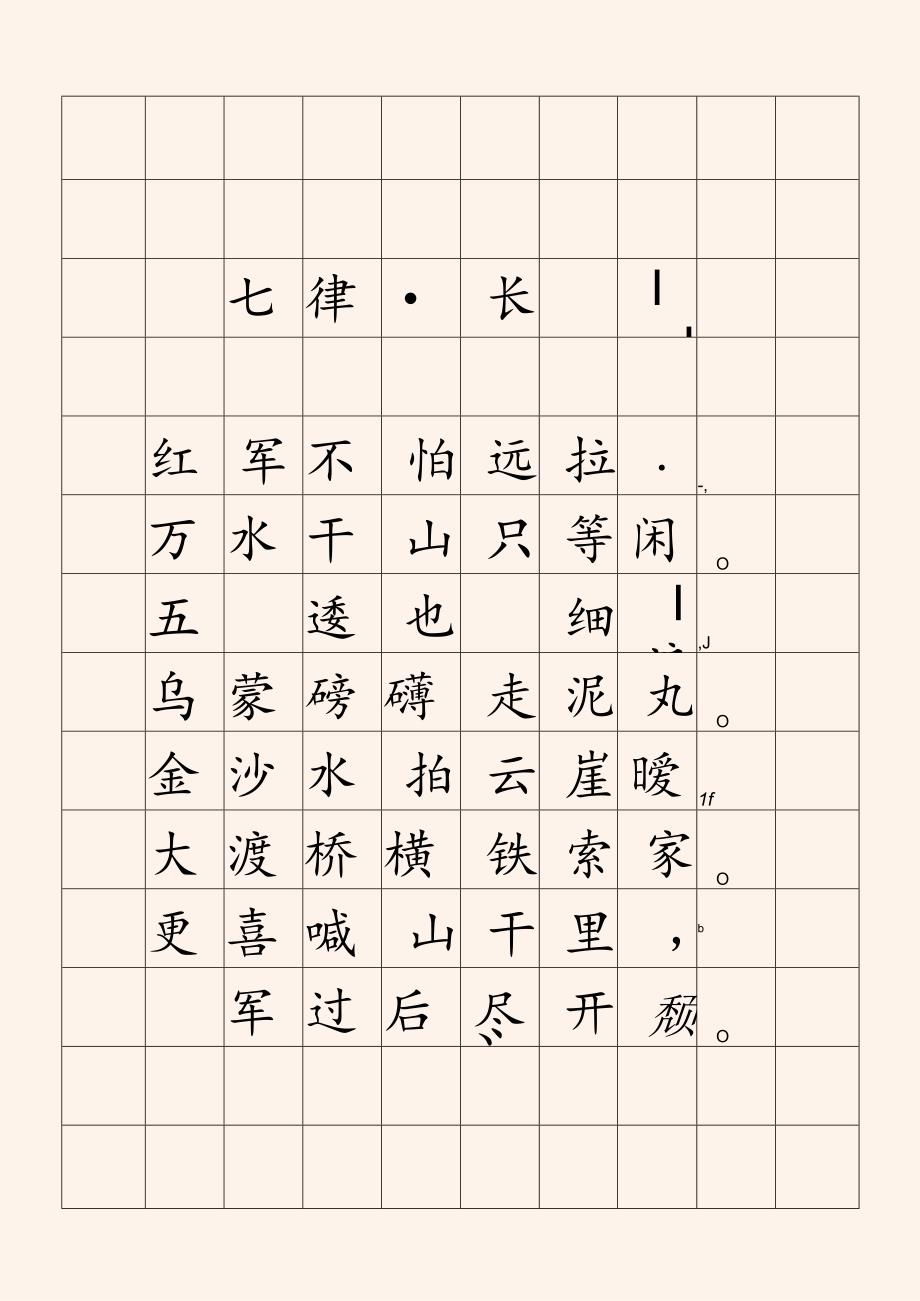 七律·长
红军不怕远拉.-,
万水干山只等闲o
五逶也细,J
乌蒙磅礴走泥丸o
金沙水拍云崖暧1f
大渡桥横铁索家o
更喜喊山干里，b
军过后尽开颓o